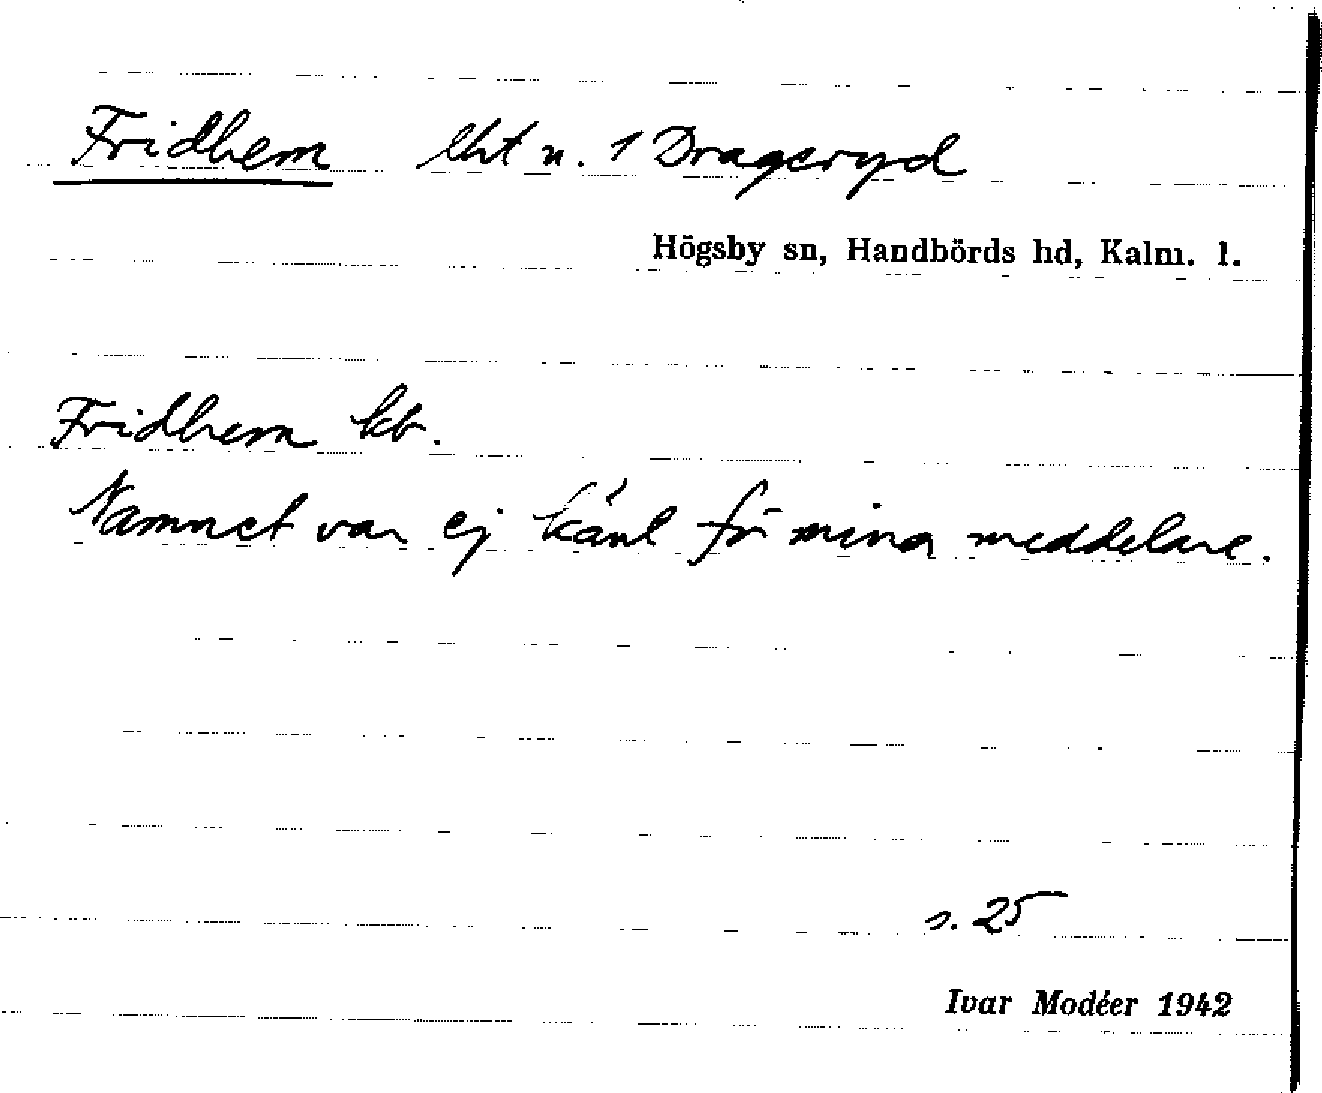 Fridhem lht u. 1 Drageryd
Högsby sn, Handbörds hd, Kalm. l.
Fridhem kb.
Namnet var ej känt för mina meddelare.
s. 25
Ivar Modéer 1942